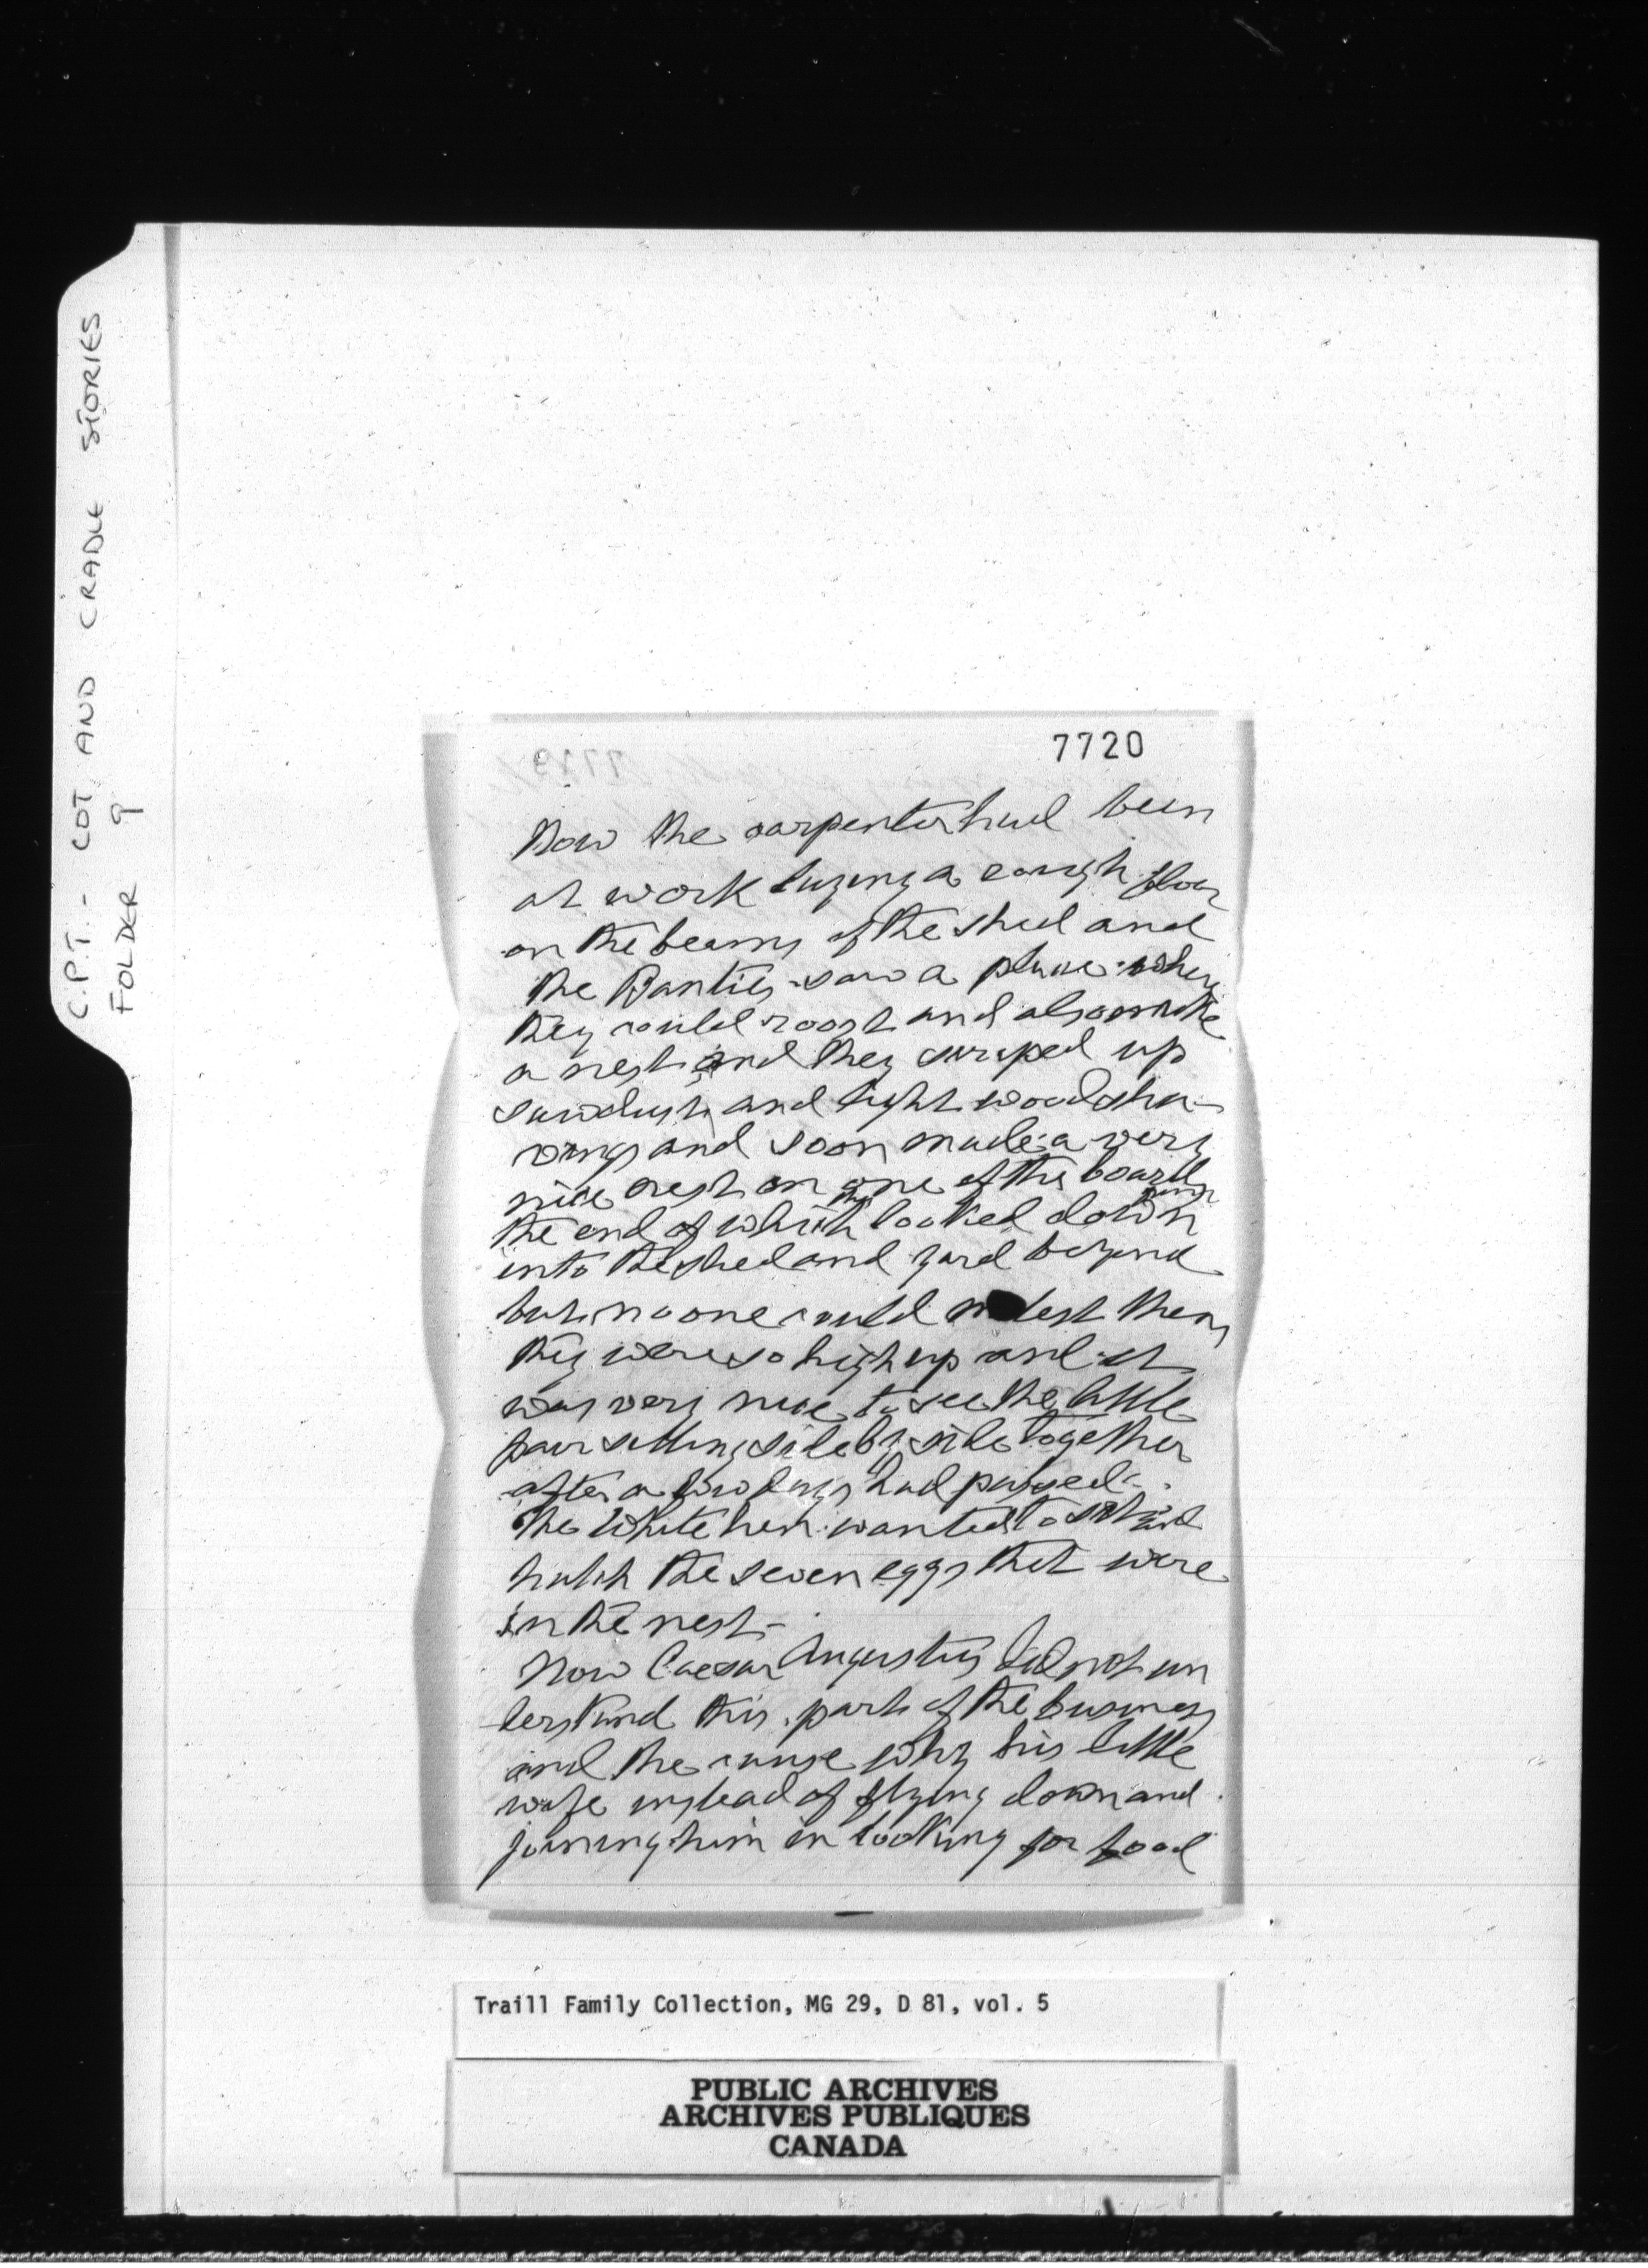 C.P.T. - COT AND CRADLE STORIES
FOLDER 9
7720
Now the carpenter had been
at work laying a rough floor
on the beams of the shed and
the Banties saw a place where
they could roost and also make
a nest and they scraped up
sawdust and light wood sha-
vings and soon made a very
nice nest on one of the boards
the end of which looked down
into the shed and yard beyond
but no one could molest them
they were so high up and it
was very nice to see the little
pair sitting side by side together
after a few days had passed -
The White hen wanted to sit and
hatch the seven eggs that were
in the nest -
Now Caesar Augustus did not un
derstand this part of the business
and the cause why his little
wife instead of flying down and
joining him in looking for food
Traill Family Collection, MG 29, D 81, vol. 5
PUBLIC ARCHIVES
ARCHIVES PUBLIQUES
CANADA